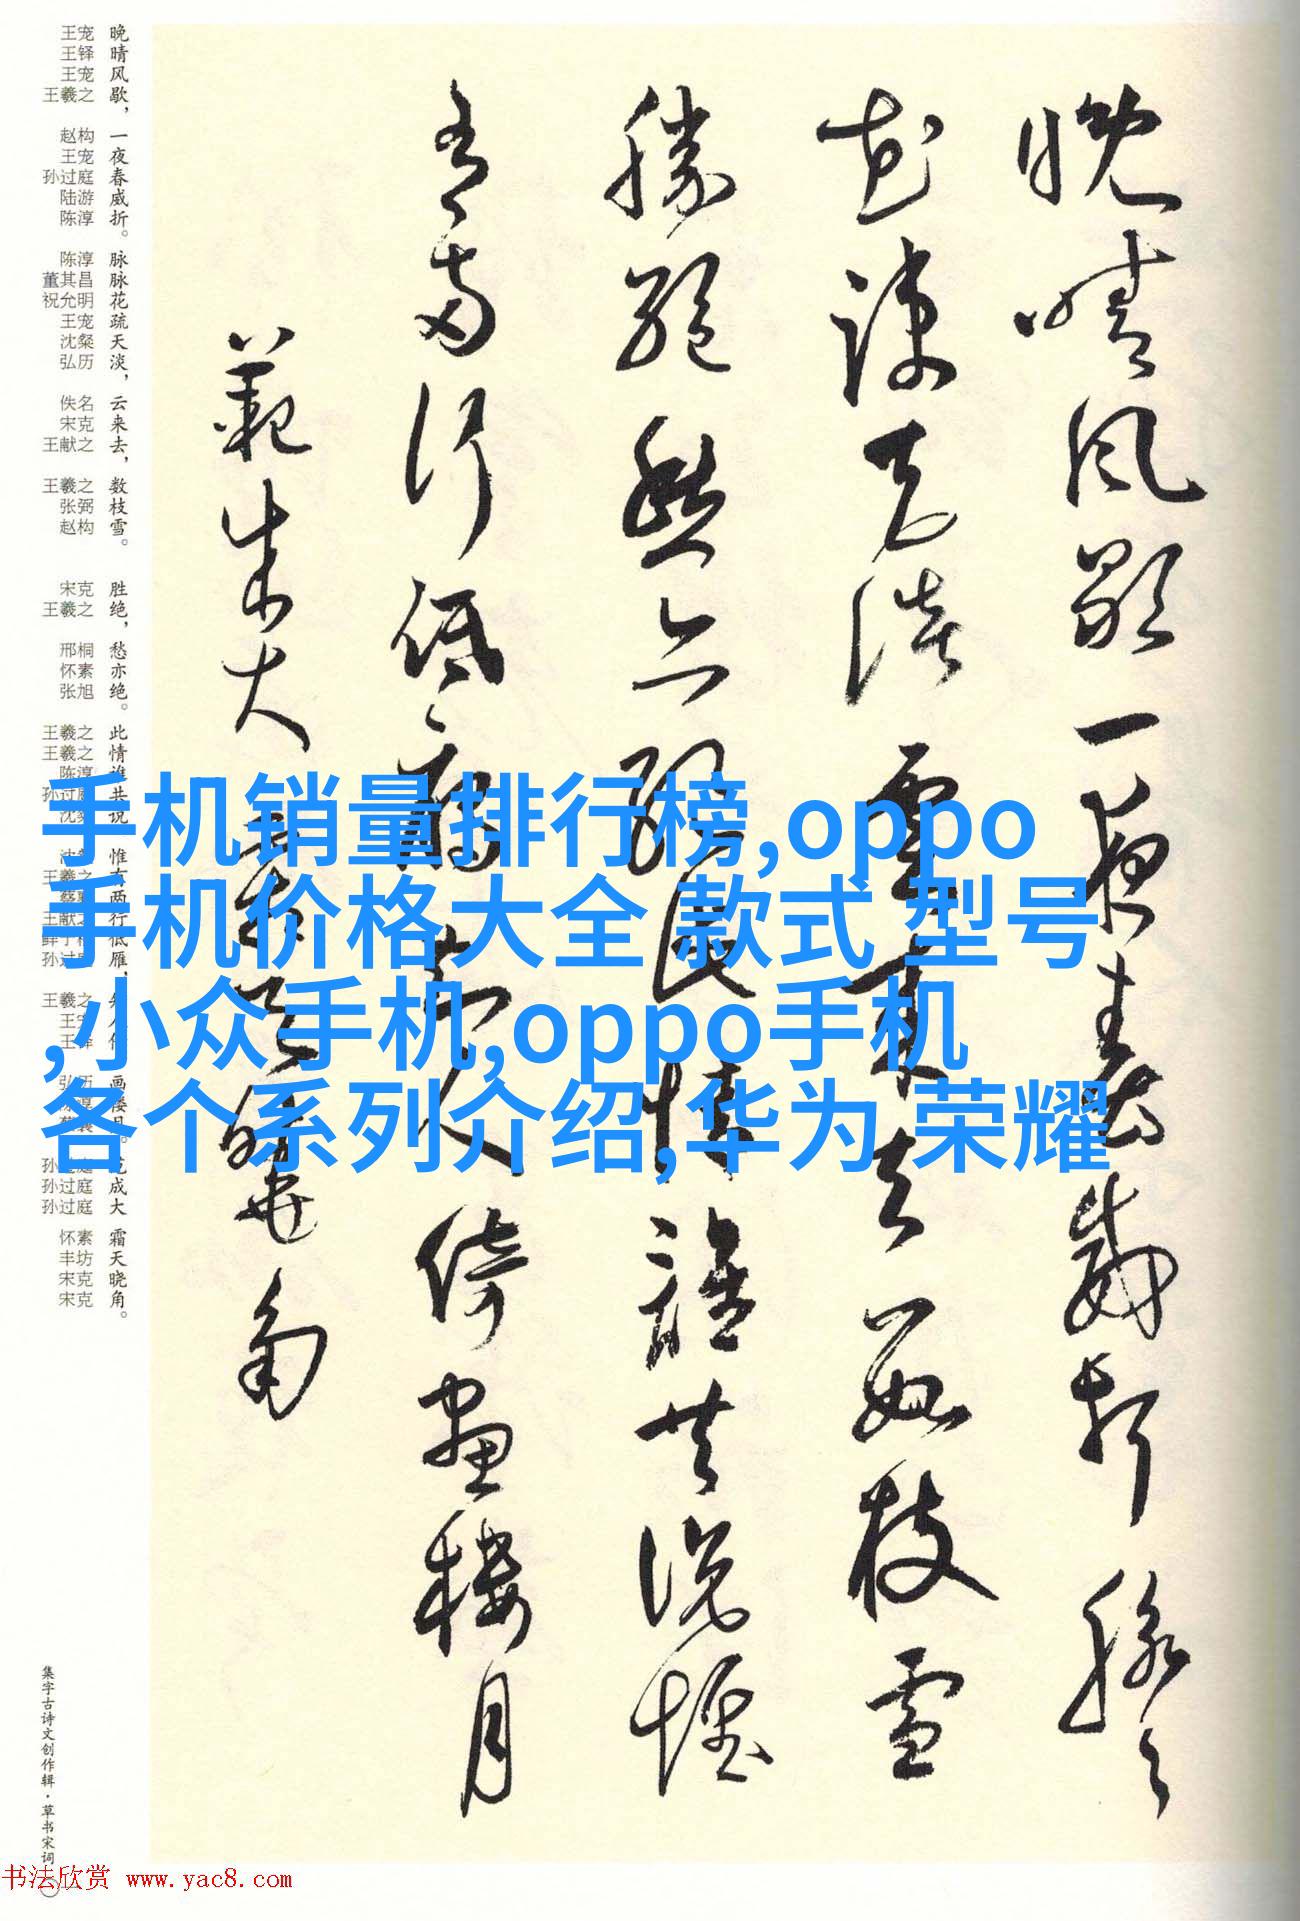 晚晴風歇一夜春威折脉々
花疎天淡雲來去數枝雪
勝絕愁亦絕此情誰共說惟
有兩行低雁知人倚畫樓月
範成大霜天曉角
晚晴风歇，
一夜春威折。
脉脉花疏天淡，
云来去，
数枝雪。
胜绝，
愁亦绝。
此情谁共说
惟有两行低雁，
画楼月。
成大
霜天晓角。
王宠
王铎
王宠
王羲之
赵构
王宠
孙过庭
陆游
陈淳
陈淳
董其昌
祝允明
王宠
沈粲
弘历
佚名
宋克
王献之
王羲之
张弼
赵构
宋克
王羲之
邢桐
怀素
张旭
王羲之
王羲之
陈淳
王羲之
孙过庭
孙过庭
怀素
丰坊
宋克
宋克
手机销量排行榜,oppo
手机价格大全 款式 型号
,小众手机,oppo手机
各个系列介绍,华为 荣耀
集字古诗文创作辑·草书宋词
书法欣赏 www.yac8.com